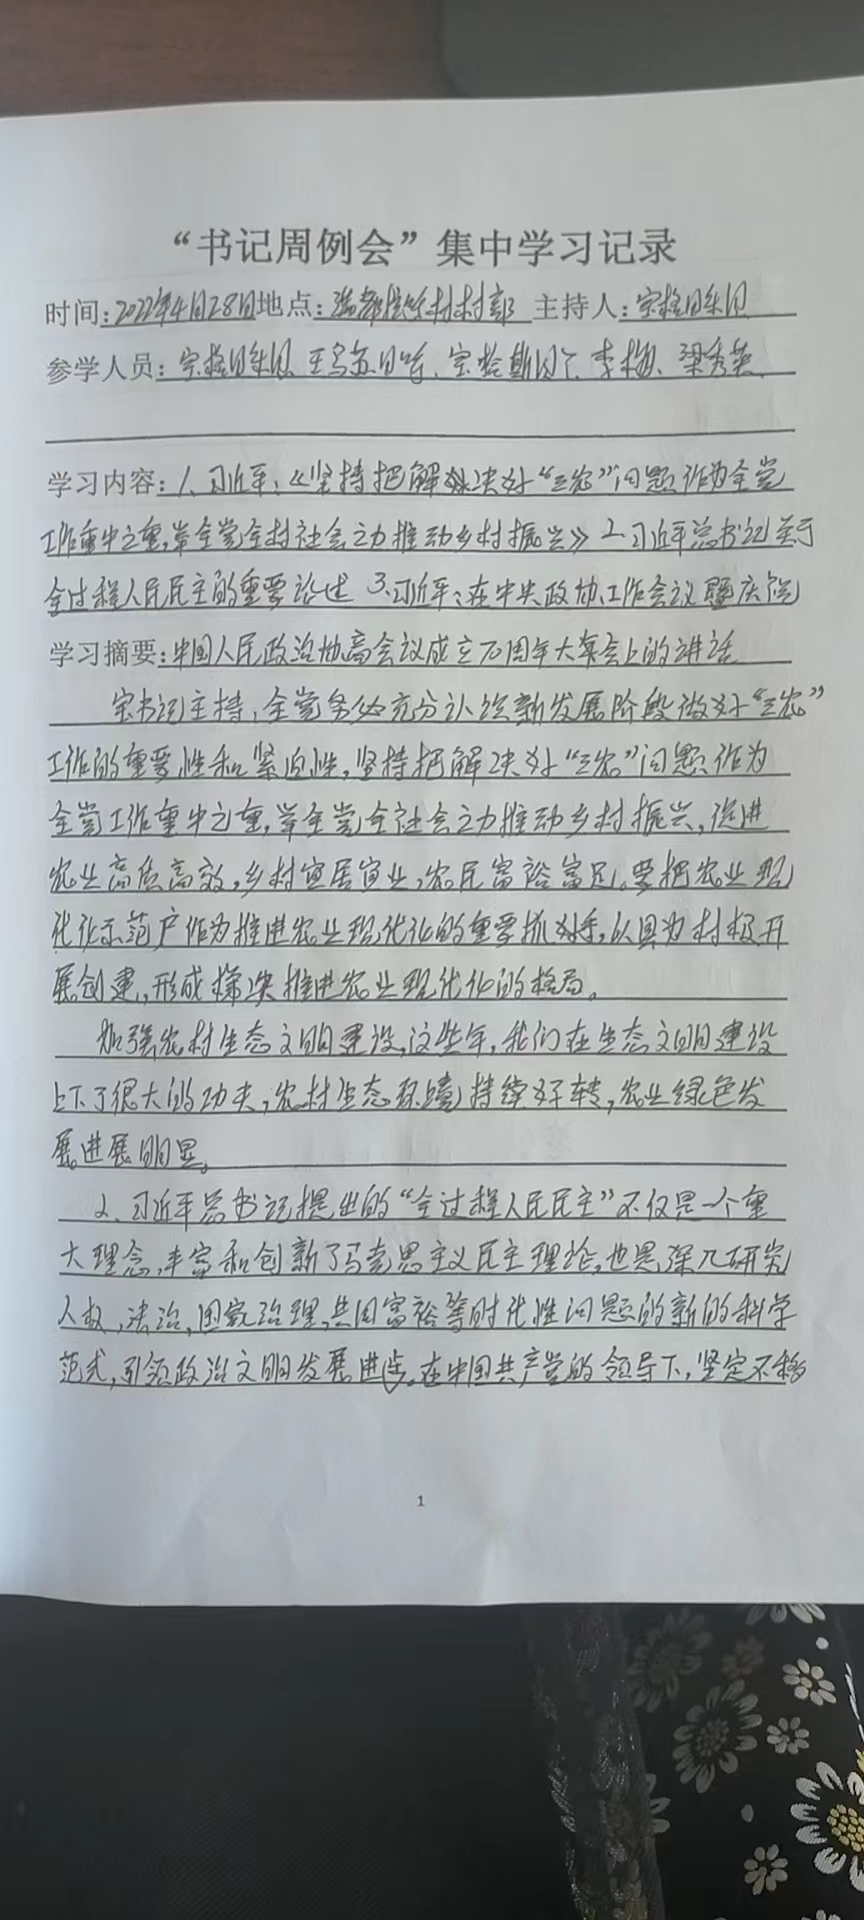 “书记周例会”集中学习记录
时间:2022年4月28日地点:村村部 主持人:宝格日朱日
参学人员:宝格日朱日、王乌、宝、李梅、梁秀英
学习内容:1、习近平:《坚持把解决好“三农”问题作为全党
工作重中之重,举全党全村社会之力推动乡村振兴》2.习近平总书记关于
全过程人民民主的重要论述 3.习近平:在中央政协工作会议暨庆祝
学习摘要:中国人民政治协商会议成立70周年大会上的讲话
宝书记主持,全党务必充分认识新发展阶段做好“三农”
工作的重要性和紧迫性,坚持把解决好“三农”问题作为
全党工作重中之重,举全党全社会之力推动乡村振兴,促进
农业高质高效,乡村宜居宜业,农民富裕富足。要把农业现
代化示范户作为推进农业现代化的重要抓手,以具为村极开
展创建,形成梯次推进农业现代化的格局。
加强农村生态文明建设,这些年,我们在生态文明建设
上下了很大的功夫,农村生态环境持续好转,农业绿色发
展进展明显。
2、习近平总书记提出的“全过程人民民主”不仅是一个重
大理念,丰富和创新了马克思主义民主理论,也是深入研究
人权,法治,国家治理,共同富裕等时代性问题的新的科学
范式,引领政治文明发展进步。在中国共产党的领导下,坚定不移
1